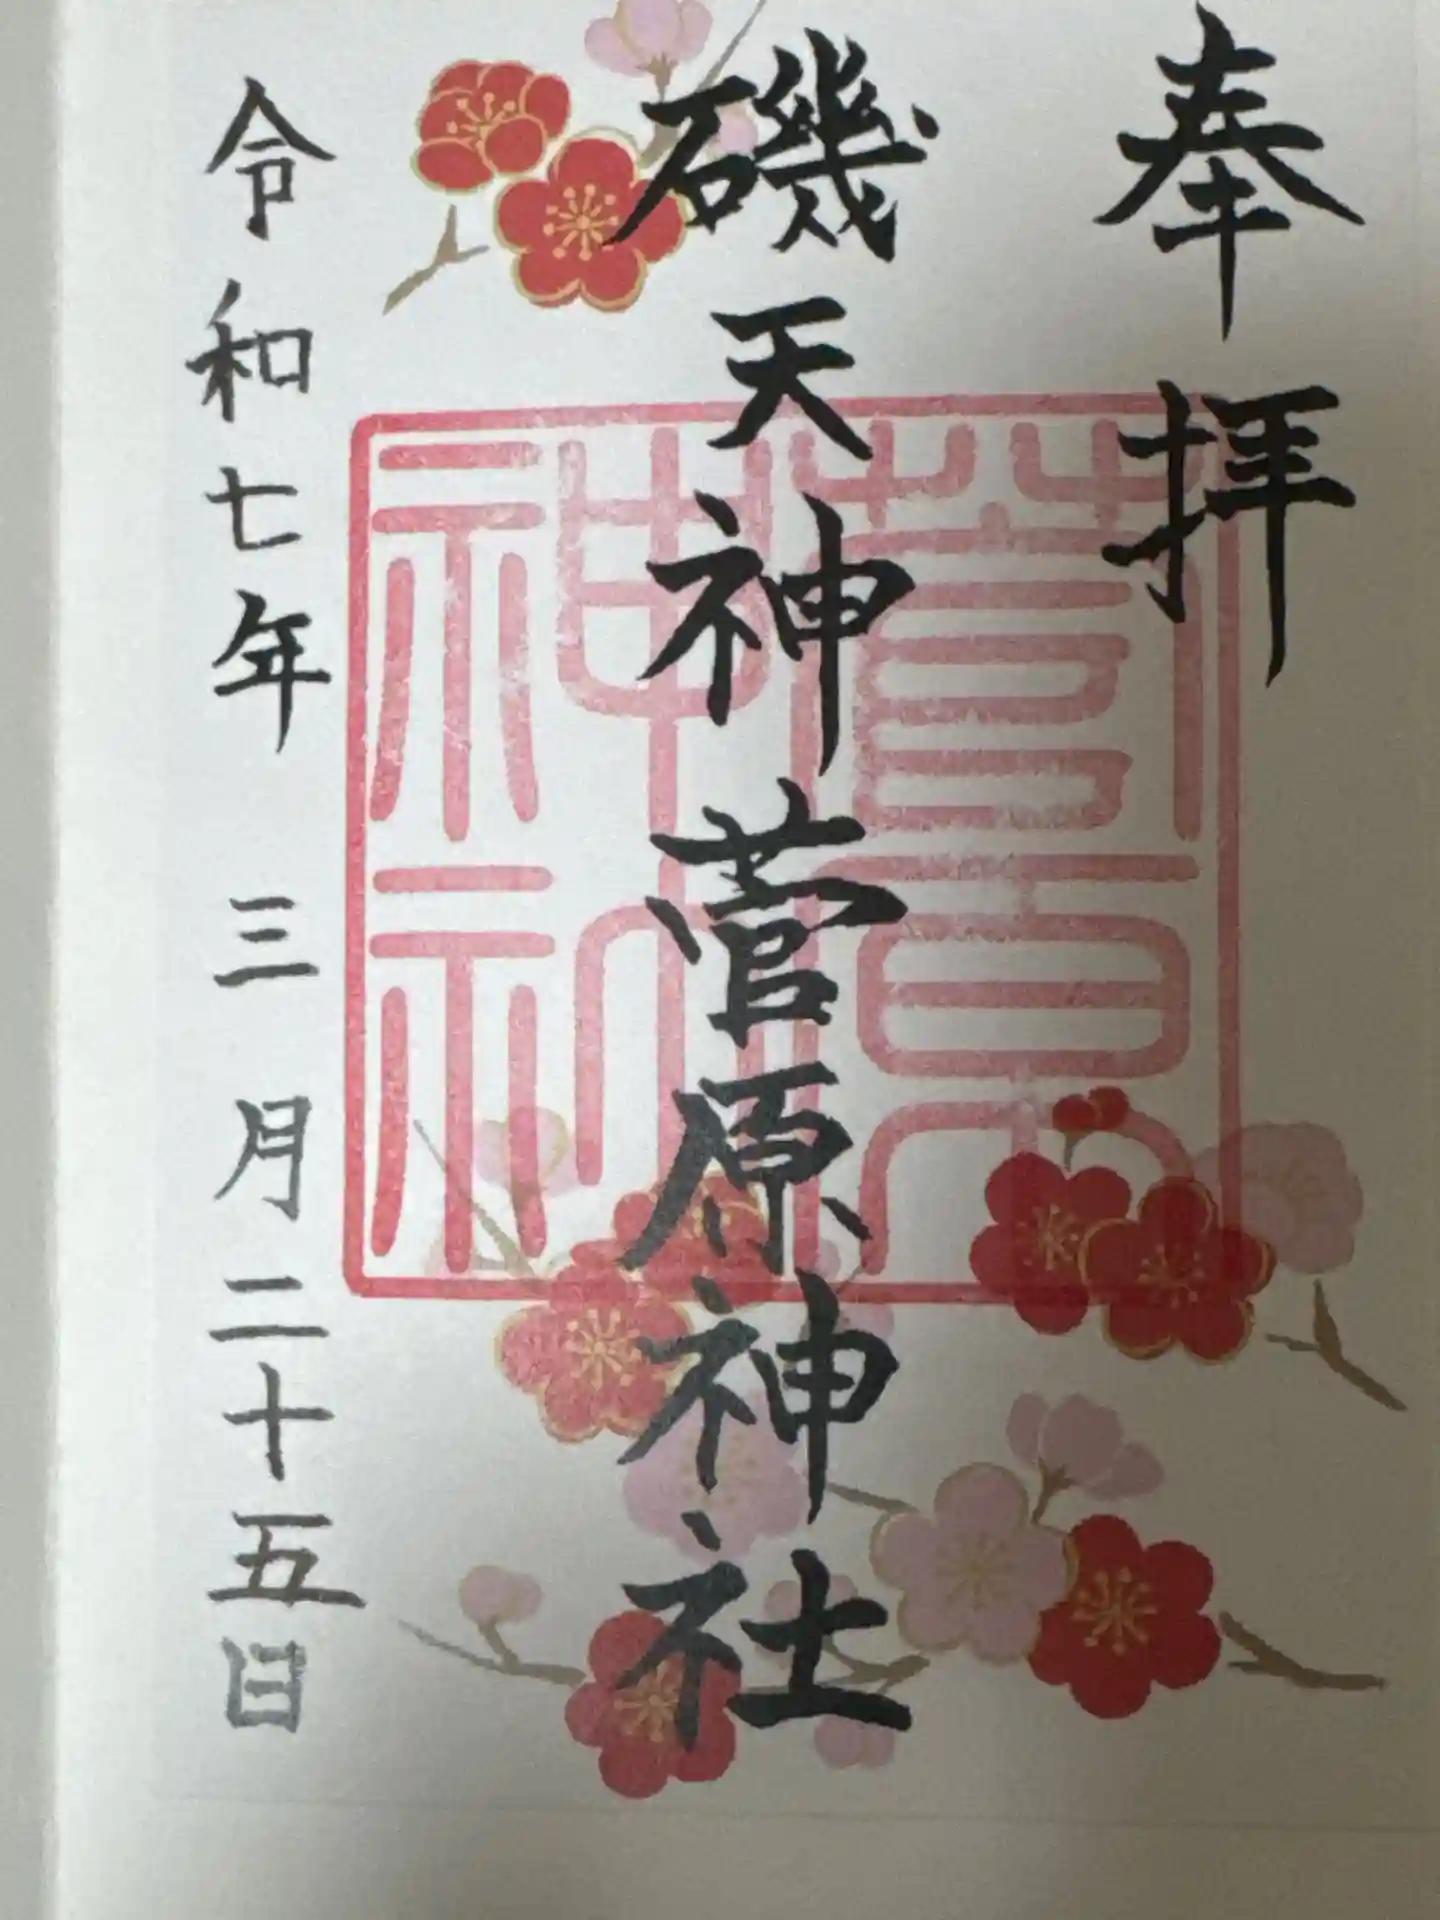 奉拝
磯天神菅原神社
菅原神社
令和七年三月二十五日